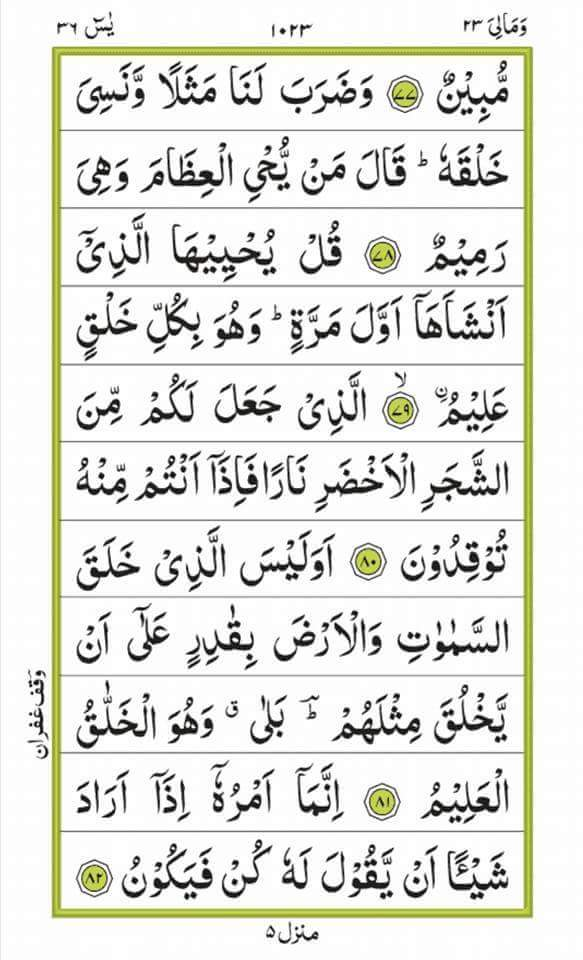 وَمَالِیَ ٢٣ ١٠٢٣ یٰسٓ ٣٦
مُّبِیْنٌ ﴿٧٧﴾ وَضَرَبَ لَنَا مَثَلًا وَّنَسِیَ
خَلْقَهٗ ؕ قَالَ مَنْ یُّحْیِ الْعِظَامَ وَهِیَ
رَمِیْمٌ ﴿٧٨﴾ قُلْ یُحْیِیْهَا الَّذِیْۤ
اَنْشَاَهَاۤ اَوَّلَ مَرَّةٍ ؕ وَهُوَ بِكُلِّ خَلْقٍ
عَلِیْمُ ۨ ﴿٧٩﴾ۙ الَّذِیْ جَعَلَ لَكُمْ مِّنَ
الشَّجَرِ الْاَخْضَرِ نَارًا فَاِذَاۤ اَنْتُمْ مِّنْهُ
تُوْقِدُوْنَ ﴿٨٠﴾ اَوَلَیْسَ الَّذِیْ خَلَقَ
السَّمٰوٰتِ وَالْاَرْضَ بِقٰدِرٍ عَلٰۤی اَنْ
یَّخْلُقَ مِثْلَهُمْ ؕ بَلٰی ۗ وَهُوَ الْخَلّٰقُ
وقف غفران
الْعَلِیْمُ ﴿٨١﴾ اِنَّمَاۤ اَمْرُهٗۤ اِذَاۤ اَرَادَ
شَیْـًٔا اَنْ یَّقُوْلَ لَهٗ كُنْ فَیَكُوْنُ ﴿٨٢﴾
منزل ٥